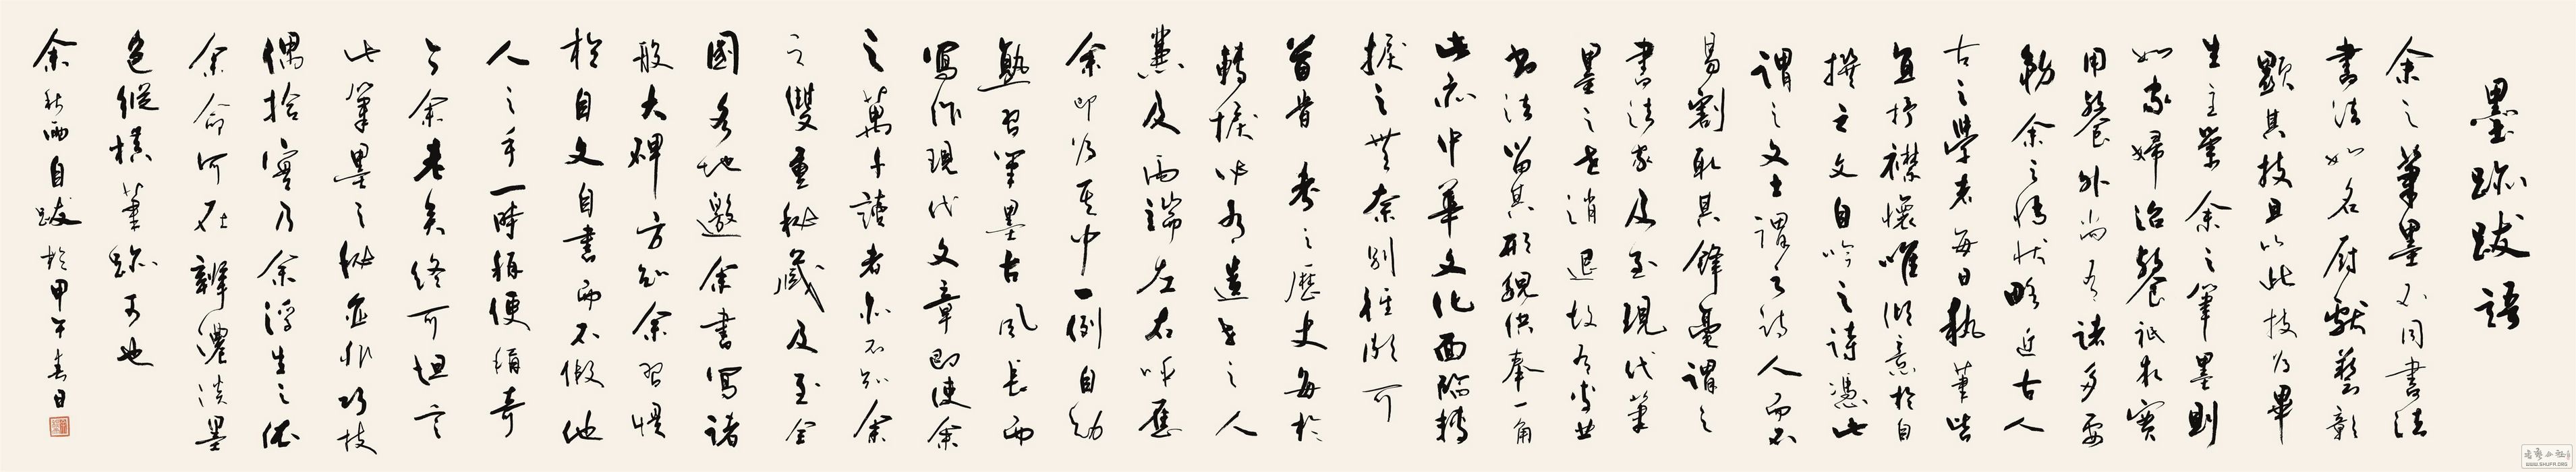 墨跡跋語
余之筆墨不同書法
書法如名廚獻藝彰
顯其技且以此技為畢
生主業余之筆墨則
如家婦治餐祇求實
用餐外尚有諸多要
務余之情狀略近古人
古之學者每日執筆皆
直抒襟懷唯傾意於自
撰之文自吟之詩憑此
謂之文士謂之詩人而不
易割取其鋒毫謂之
書法家及至現代筆
墨之世消退故有專業
書法留其形貌供奉一角
此亦中華文化面臨轉
捩之無奈別種 可
首肯考之歷史每於
轉捩必有遺世之人
兼及兩端左右呼應
余即為其中一例自幼
熟習筆墨古風長而
寫作現代文章即使余
之萬千讀者亦不知余
之雙重秘藏及至全
國多地邀余書寫諸
般大碑方知余習慣
於自文自書而不假他
人之手一時稱便稱奇
今余老矣終可坦言
此筆墨之秘並非巧技
偶拾實乃余浮生之依
余命何在 濃淡墨
色縱橫筆跡可也
余秋雨自跋於甲午春日